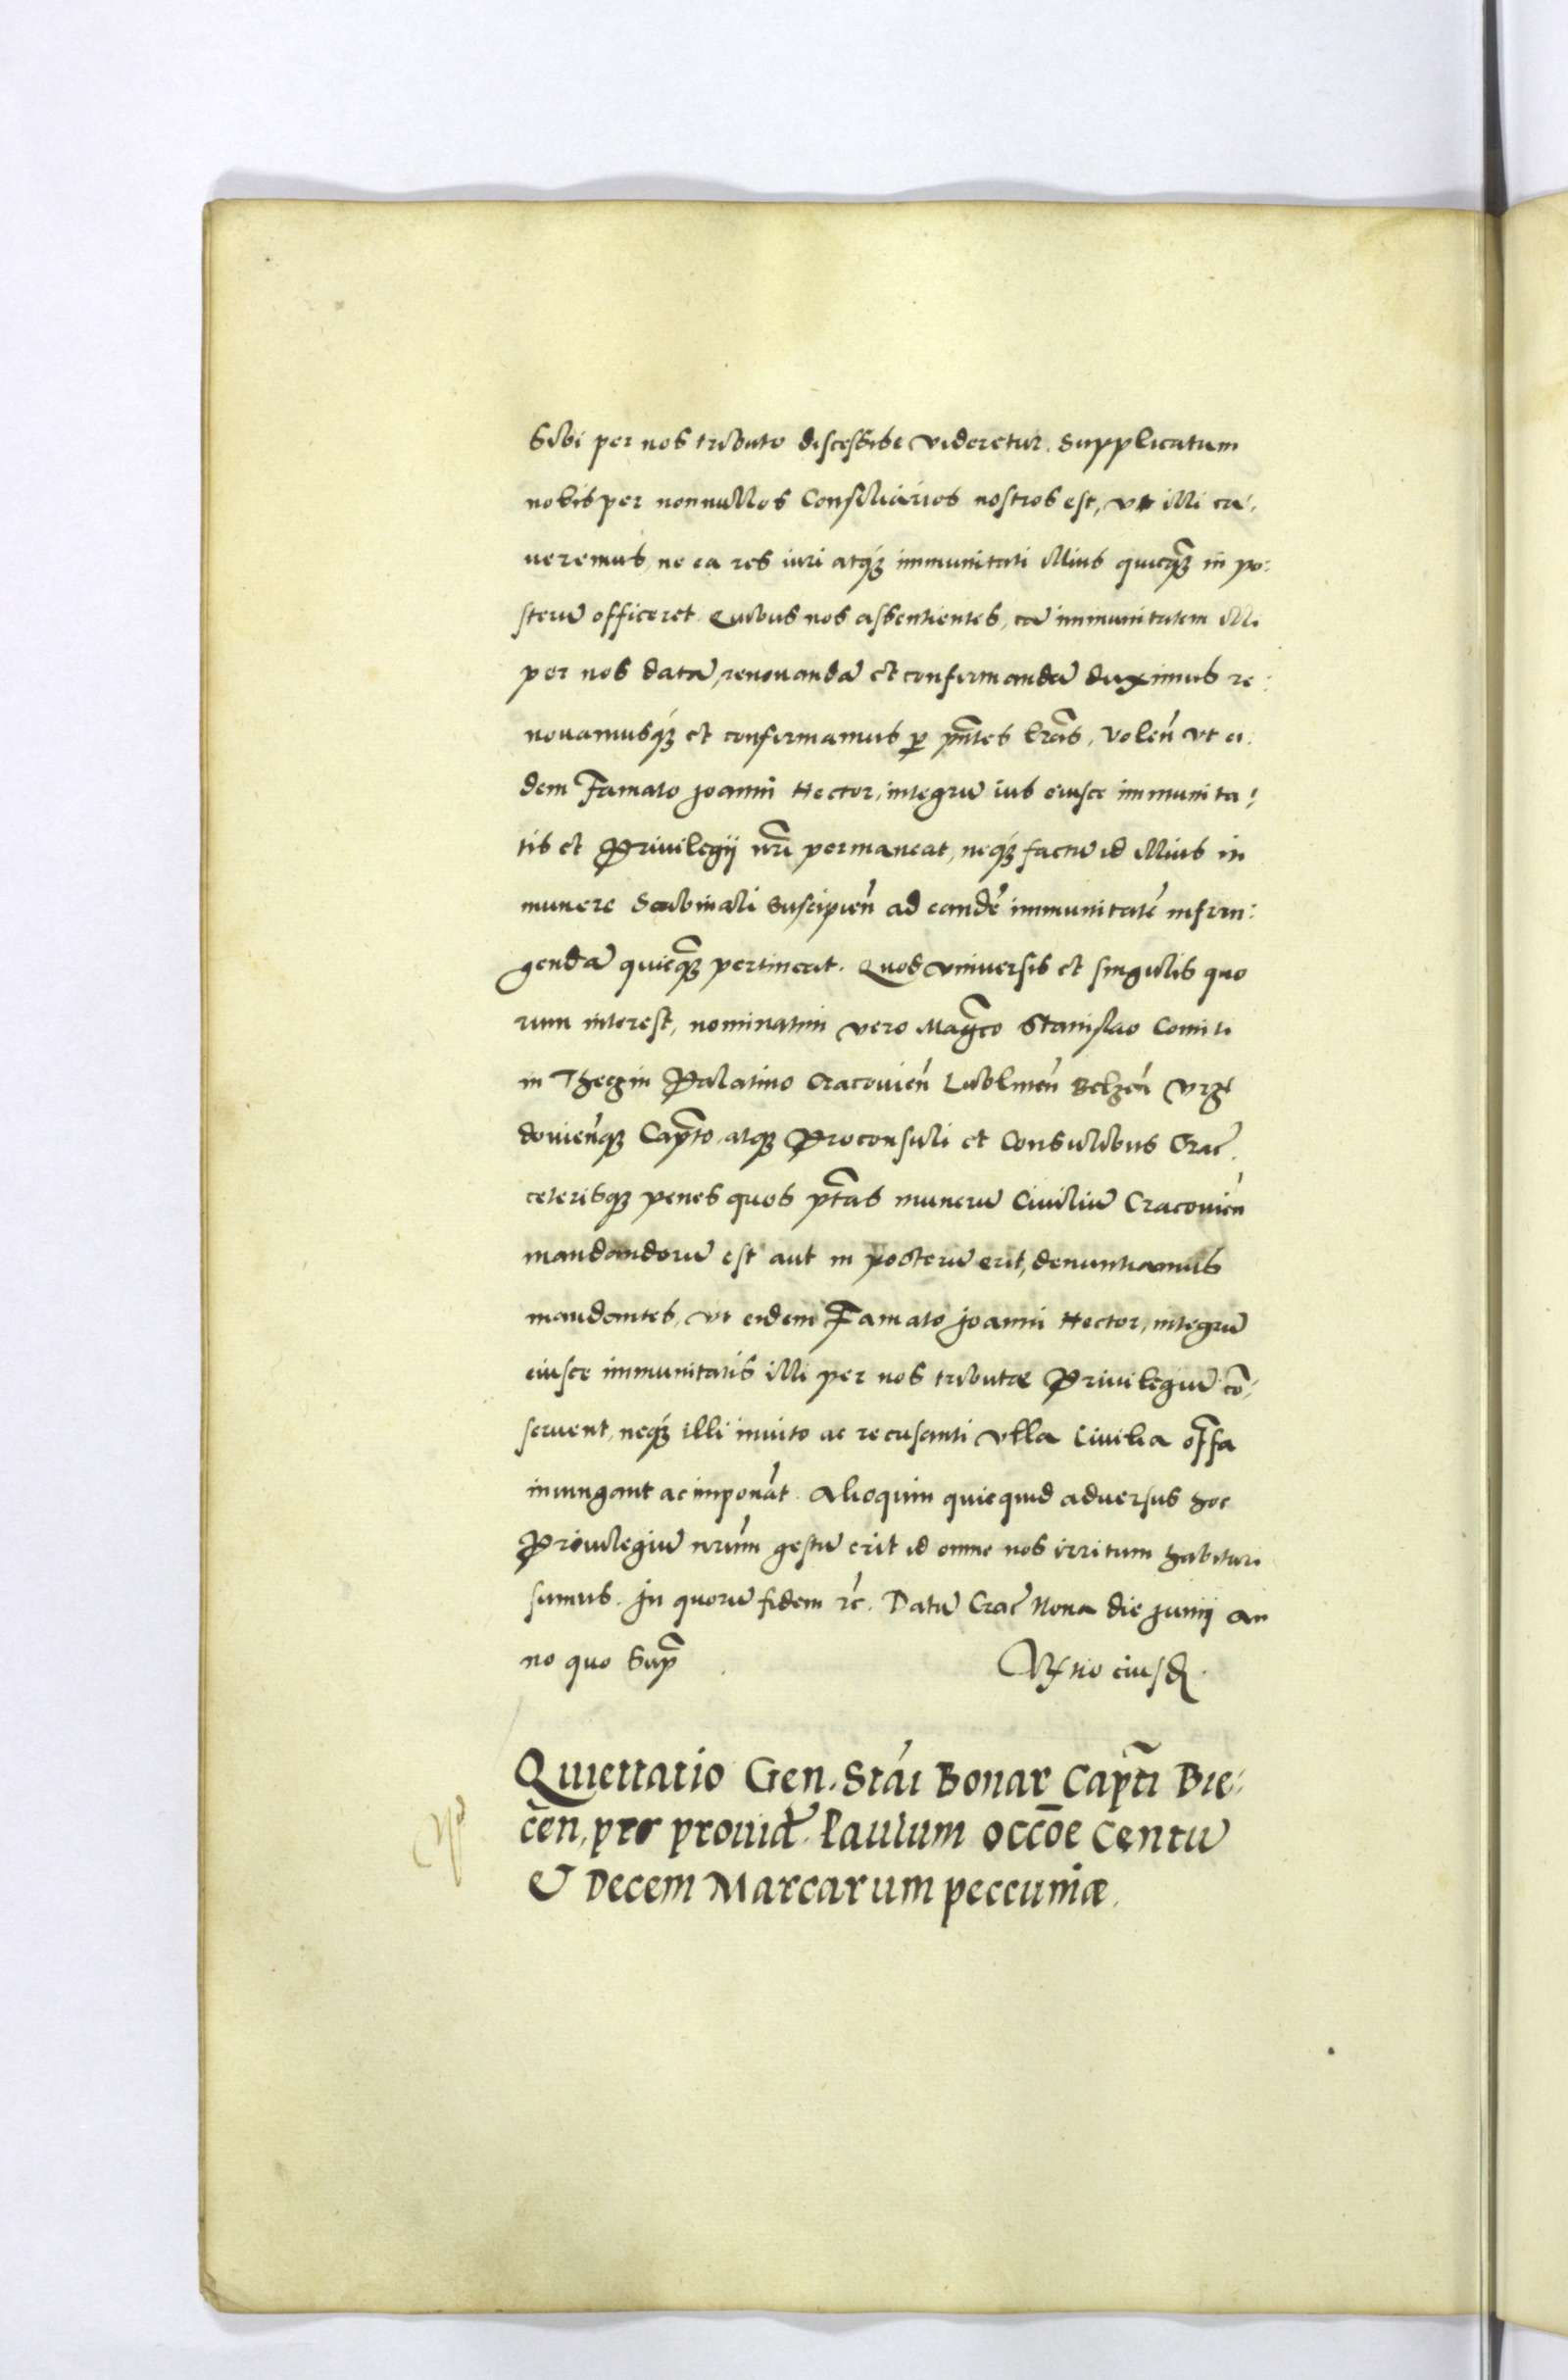 Sibi per nos tributo discessisse videretur. Supplicatum
nobis per nonnullos Consiliarios nostros est, vt illi ca:
ueremus, ne ea res iuri atq́ꝫ immunitati illius quicq̃ꝫ in po:
sterū officeret. Quibus nos assentientes, eā immunitatem illi
per nos datā, renouandā et confirmandā duximus re:
nouamusq́ꝫ et confirmamus ꝑ pñtes lrãs, Voleñ vt ei:
dem Famato Joanni Hector, integrū ius eiusce immunita:
tis et Priuilegij nrĩ permaneat, neq́ꝫ factū id illius in
munere Scabinali suscipień ad eandē immunitatē infrin:
gendā quicq̃ꝫ pertineat. Quod vniuersis et singulis quo
rum interest, nominatim vero Mag̃co Stanislao Comiti
in Theczin Palatino Cracovień Lublineń Belzeń Vrzē
dovieńqꝫ Cap̃to, atqꝫ Proconsuli et Consulibus Crac̃.
ceterisqꝫ penes quos p̃tas munerū Ciuiliū Cracovień
mandandorū est aut in posterū erit, denuntiamus
mandantes, vt eidem Famato Joanni Hector, integrū
eiusce immunitatis illi per nos tributæ Priuilegiū cō:
seruent, neq́ꝫ illi inuito ac recusanti vlla Ciuilia off̃a
iniungant ac imponãt. Alioquin quicquid adversus hoc
Priuilegiū nrũm gestū erit id omne nos irritum habituri
sumus. In quorū fidem rc̃. Datū Crac̃ Nona die Junij an
no quo Sup̃.
R̃tio eiusd̃.
Quiettatio Gen. Stãi Bonar Cap̃ti Bie:
c̃en, pro prouid̃. Paulum occōe Centū
& Decem Marcarum peccuniæ.